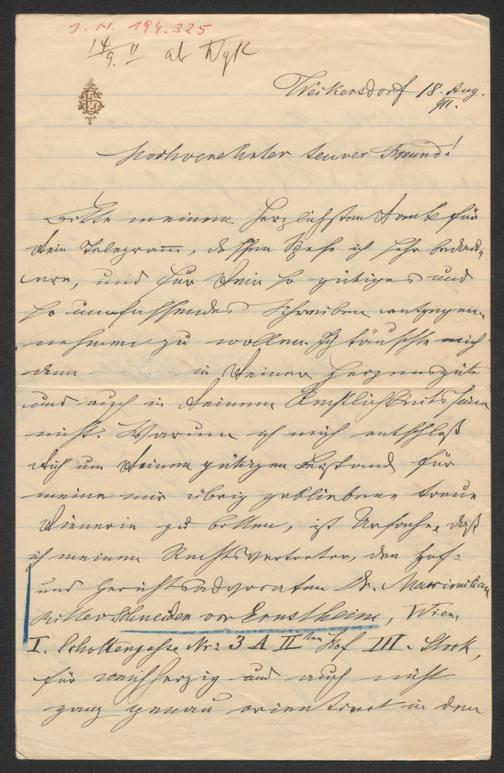 I. N. 194.325
14/9. II ab Dyk
Weikersdorf 18. Aug.
911.
Hochverehrter teurer Freund!
Bitte meinen herzlichsten Dank für
Dein Telegramm, dessen Spese ich sehr bedau-
ere, und für Dein so gütiges und
so umfassendes Schreiben entgegen-
nehmen zu wollen. Ich täuschte mich
denn in Deiner Herzensgüte
und auch in Deinem Rechtlichkeitssinn
nicht. Warum ich mich entschloß
Dich um Deinen gütigen Beistand für
meine mir übrig gebliebene treue
Dienerin zu bitten, ist Ursache, daß
ich meinen Rechtsvertreter, den Hof-
und Gerichtsadvocaten Dr. Maximilian
Ritter Schneider von Ernstheim, Wien,
I. Schottengasse Nr: 3 A IIten Hof III. Stock,
für weichherzig und auch nicht
ganz genau orientirt in dem